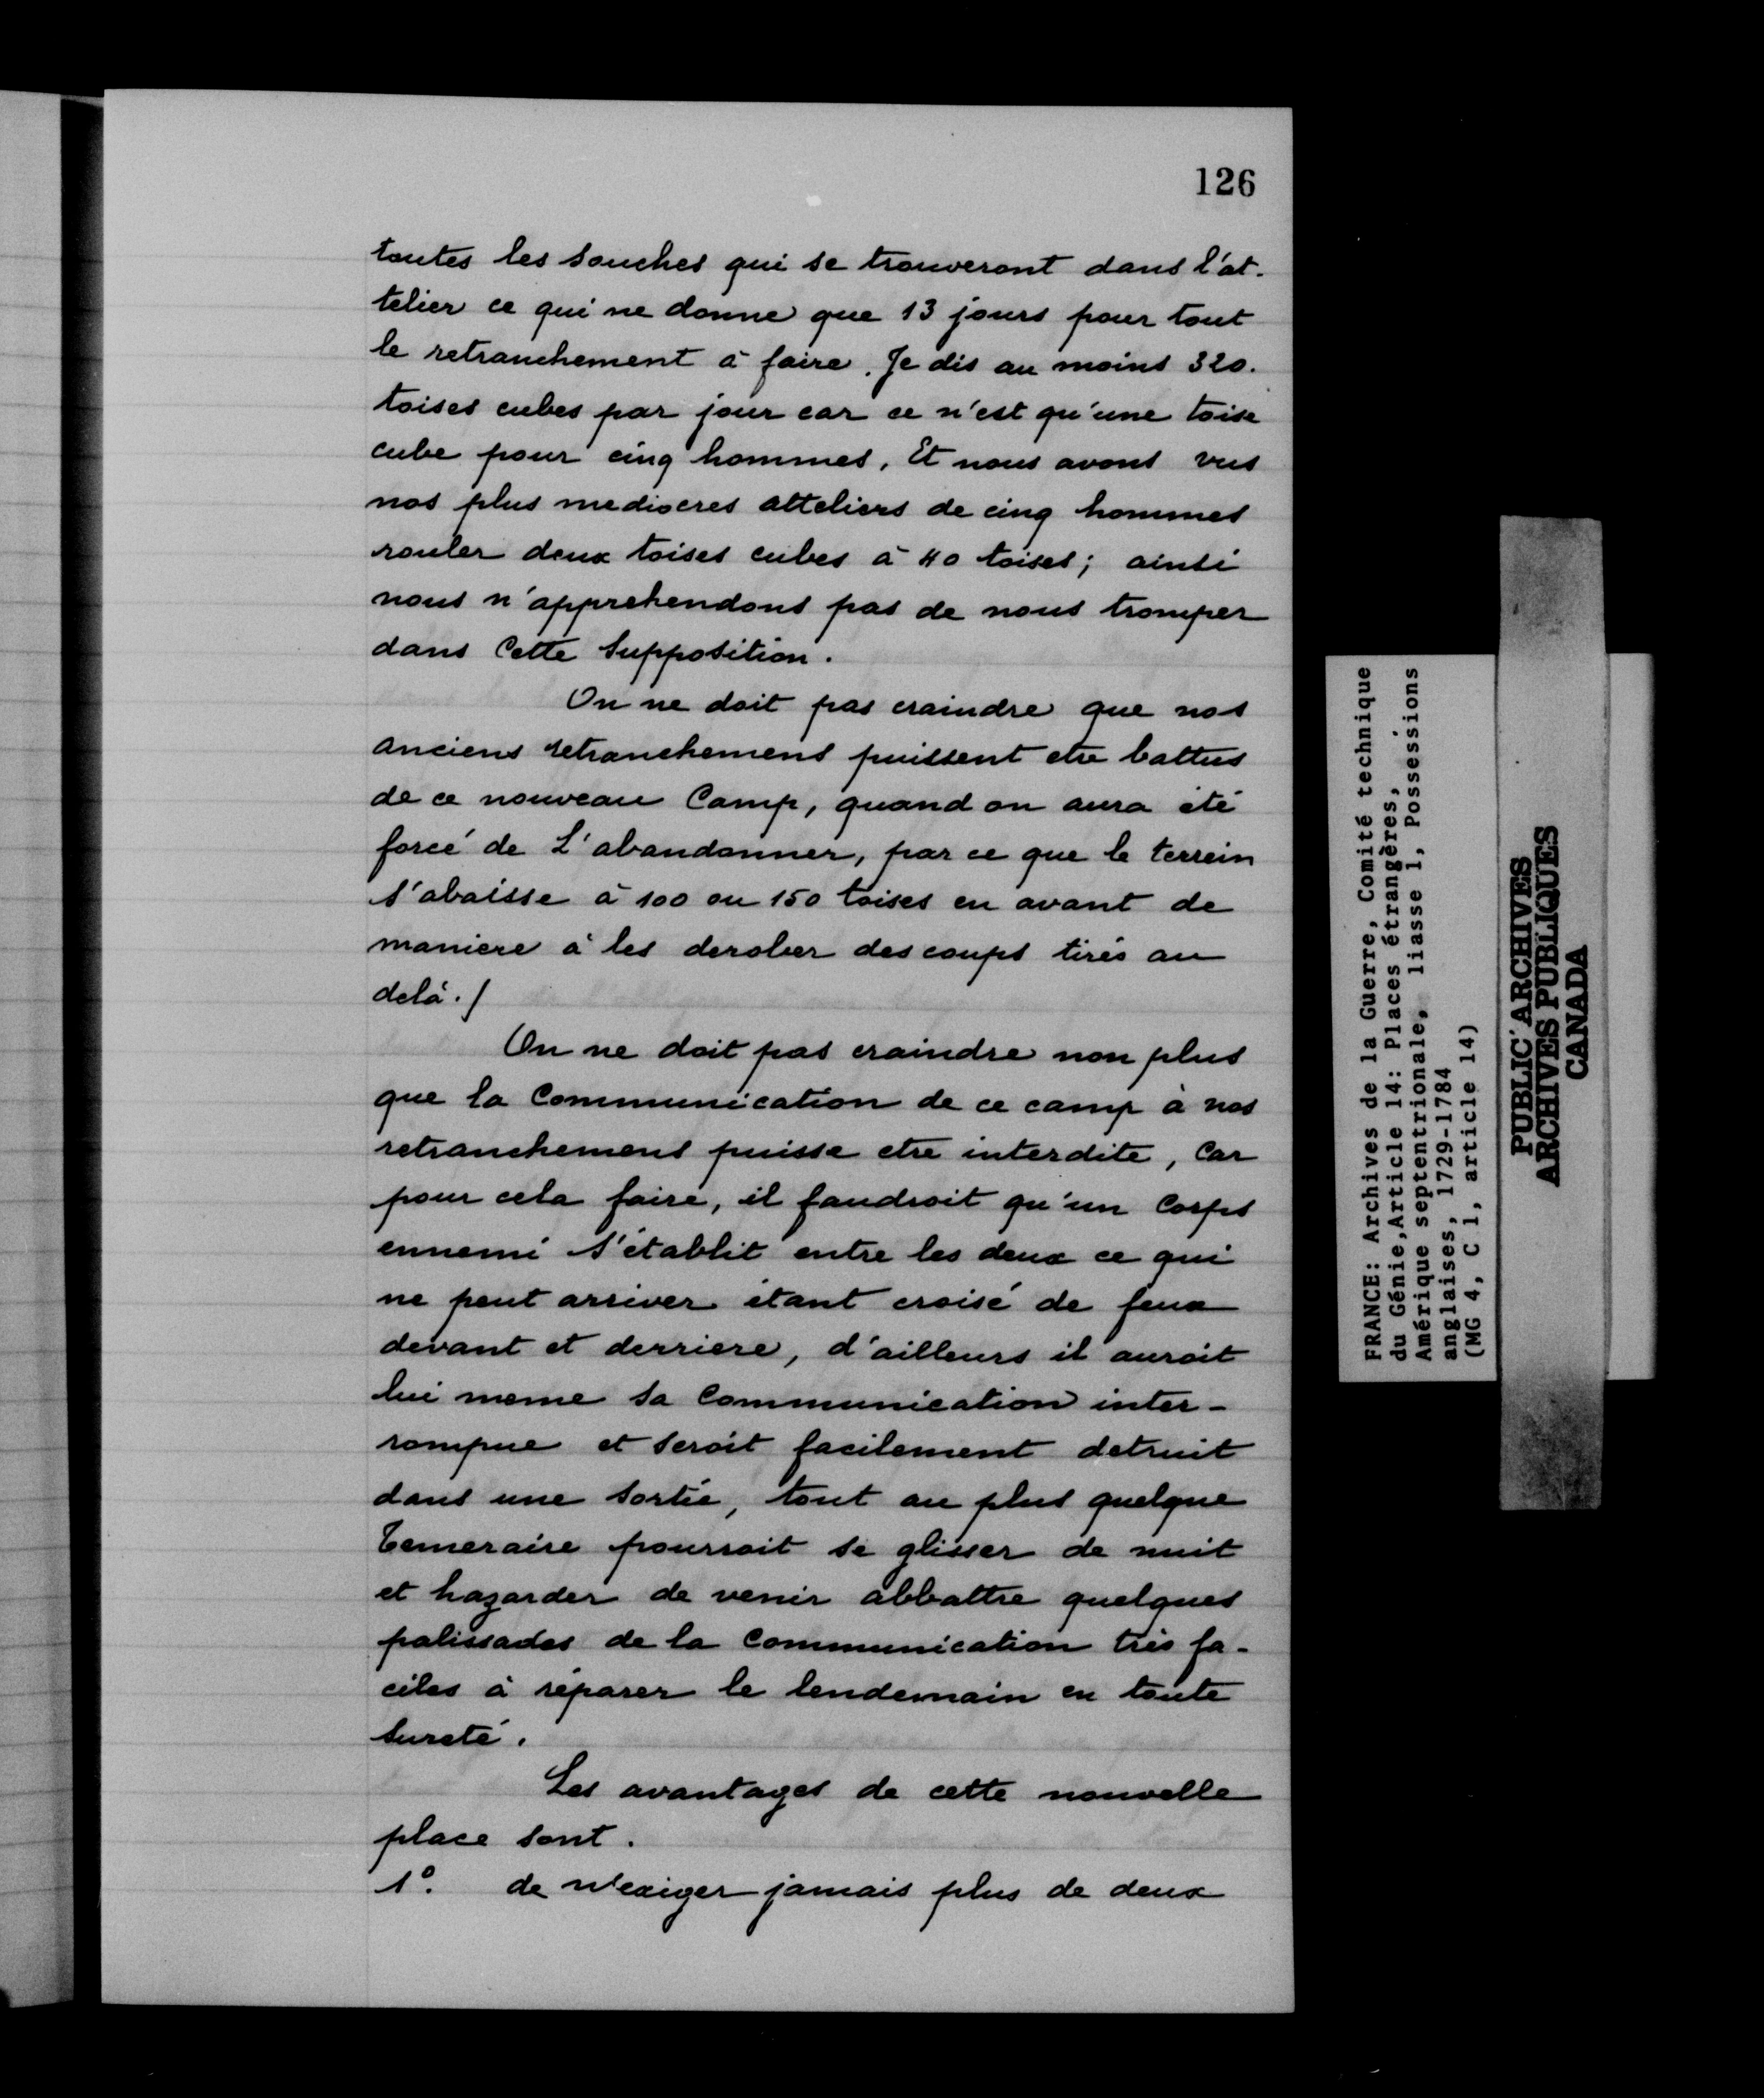 126
toutes les souches qui se trouveront dans l'at-
telier ce qui ne donne que 13 jours pour tout
le retranchement à faire. Je dis au moins 320.
toises cubes par jour car ce n'est qu'une toise
cube pour cinq hommes. Et nous avons vus
nos plus mediocres atteliers de cinq hommes
rouler deux toises cubes à 40 toises; ainsi
nous n'apprehendons pas de nous tromper
dans Cette Supposition.
On ne doit pas craindre que nos
anciens retranchemens puissent etre battus
de ce nouveau Camp, quand on aura été
forcé de L'abandonner, par ce que le terrein
s'abaisse à 100 ou 150 toises en avant de
maniere à les derober des coups tirés au
delà./
On ne doit pas craindre non plus
que la Communication de ce camp à nos
retranchemens puisse etre interdite, Car
pour cela faire, il faudroit qu'un Corps
ennemi s'établit entre les deux ce qui
ne peut arriver étant croisé de feux
devant et derriere, d'ailleurs il auroit
lui meme sa Communication inter-
rompue et seroit facilement detruit
dans une sortie, tout au plus quelque
temeraire pourroit se glisser de nuit
et hazarder de venir abbattre quelques
palissades de la Communication très fa-
ciles à réparer le lendemain en toute
sureté.
Les avantages de cette nouvelle
place sont.
1º. de n'exiger jamais plus de deux
FRANCE: Archives de la Guerre, Comité technique
du Génie, Article 14: Places étrangères,
Amérique septentrionale, liasse 1, Possessions
anglaises, 1729-1784
(MG 4, C 1, article 14)
PUBLIC ARCHIVES
ARCHIVES PUBLIQUES
CANADA